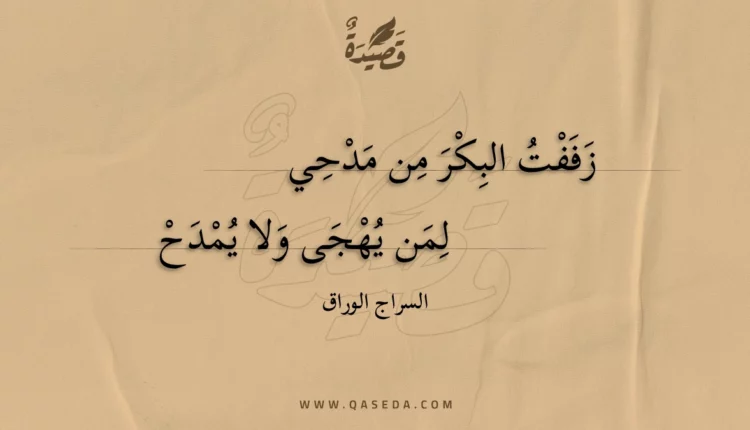 قَصِيْدَةٌ
زَفَفْتُ البِكْرَ مِن مَدْحِي
لِمَن يُهْجَى وَلا يُمْدَحْ
السراج الوراق
WWW.QASEDA.COM